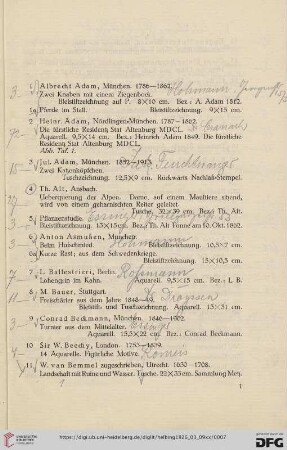 1 Albrecht Adam, München. 1786—1862.
Zwei Knaben mit einem Ziegenbock.
Bleistiftzeichnung auf P. 8×10 cm. Bez.: A. Adam 1812.
1a Pferde im Stall. Bleistiftzeichnung. 9×15 cm.
2 Heinr. Adam, Nördlingen-München. 1787—1862.
Die fürstliche Residenz Stat Altenburg MDCL.
Aquarell. 9,5×14 cm. Bez.: Heinrich Adam 1849. Die fürstliche
Residentz Stat Altenburg MDCL.
Abb. Taf. 1.
3 Jul. Adam, München. 1852—1913.
Zwei Katzenköpfchen.
Tuschzeichnung. 12,5×9 cm. Rückwärts Nachlaß-Stempel.
4 Th. Alt, Ansbach.
Ueberquerung der Alpen. Dame, auf einem Maultiere sitzend,
wird von einem geharnischten Reiter geleitet.
Tusche. 32×39 cm. Bez.: Th. Alt.
5 Pflanzenstudie.
Bleistiftzeichnung. 13×15 cm. Bez.: Th. Alt 10. Okt. 1862.
6 Anton Asmussen, München.
Beim Hufschmied. Bleistiftzeichnung. 10,5×2 cm.
6a Kurze Rast; aus dem Schwedenkriege.
Bleistiftzeichnung. 13×10,5 cm.
7 L. Ballestrieri, Berlin. Hohmann
Lohengrin im Kahn. Aquarell. 9,5×15 cm. Bez.: L. B.
8 M. Bauer, Stuttgart.
Freischärler aus dem Jahre 1848—49.
Bleistift- und Tuschzeichnung. Aquarell. 13×31 cm.
9 Conrad Beckmann, München. 1846—1902.
Turnier aus dem Mittelalter.
Aquarell. 15,5×22 cm. Bez.: Conrad Beckmann.
10 Sir W. Beechy, London. 1753—1839.
14 Aquarelle. Figürliche Motive.
11 W. van Bemmel zugeschrieben, Utrecht. 1630—1708.
Landschaft mit Ruine und Wasser. Tusche. 22×33 cm. Sammlung Metz.
1
https://digi.ub.uni-heidelberg.de/diglit/helbing1926_03_09xx/0007
UNIVERSITÄTS-
BIBLIOTHEK
HEIDELBERG
DFG